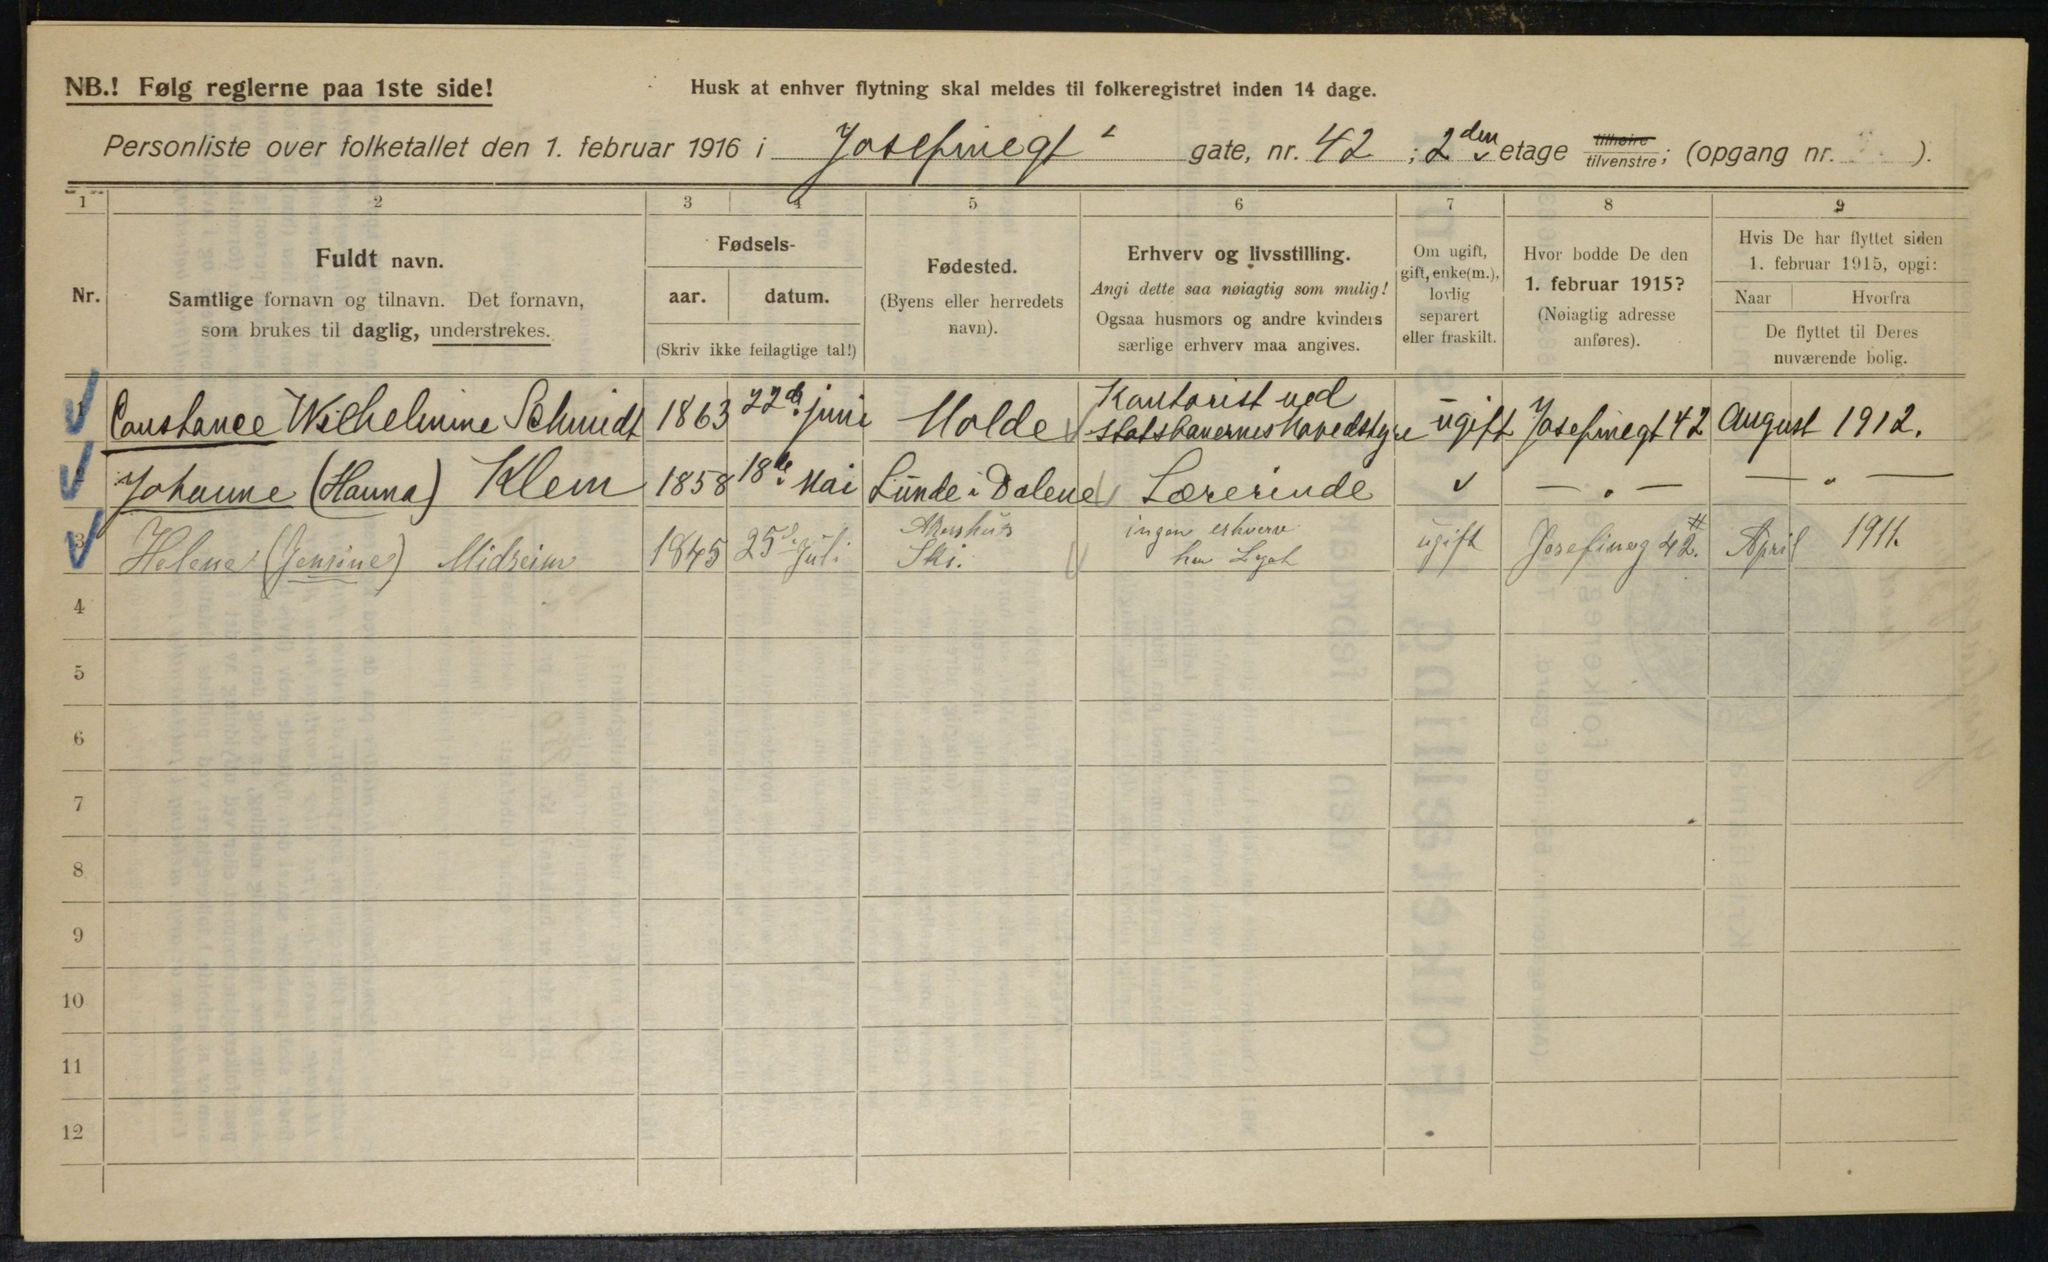 NB.! Følg reglerne paa 1ste side!
Husk at enhver flytning skal meldes til folkeregistret inden 14 dage.
Personliste over folketallet den 1. februar 1916 i Josefinegt gate, nr. 42 ; 2den etage tilhøire tilvenstre; (opgang nr. ).
1 2 3 4 5 6 7 8 9
Nr.
Fuldt navn.
Samtlige fornavn og tilnavn. Det fornavn,
som brukes til daglig, understrekes.
Fødsels-
aar. datum.
(Skriv ikke feilagtige tal!)
Fødested.
(Byens eller herredets
navn).
Erhverv og livsstilling.
Angi dette saa nøiagtig som mulig!
Ogsaa husmors og andre kvinders
særlige erhverv maa angives.
Om ugift,
gift, enke(m.),
lovlig
separert
eller fraskilt.
Hvor bodde De den
1. februar 1915?
(Nøiagtig adresse
anføres).
Hvis De har flyttet siden
1. februar 1915, opgi:
Naar Hvorfra
De flyttet til Deres
nuværende bolig.
1 Constance Wilhelmine Schmidt 1863 22de juni Molde Kontorist ved
statsbanernes hovedstyre ugift Josefinegt 42 August 1912.
2 Johanne (Hanna) Klem 1858 18de Mai Lunde i Dalene Lærerinde — „ — — „ —
3 Helene (Jensine) Midseim 1845 25de Juli Akershus
Ski. ingen erhverv
har Legat ugift Josefineg 42II. April 1911.
4
5
6
7
8
9
10
11
12